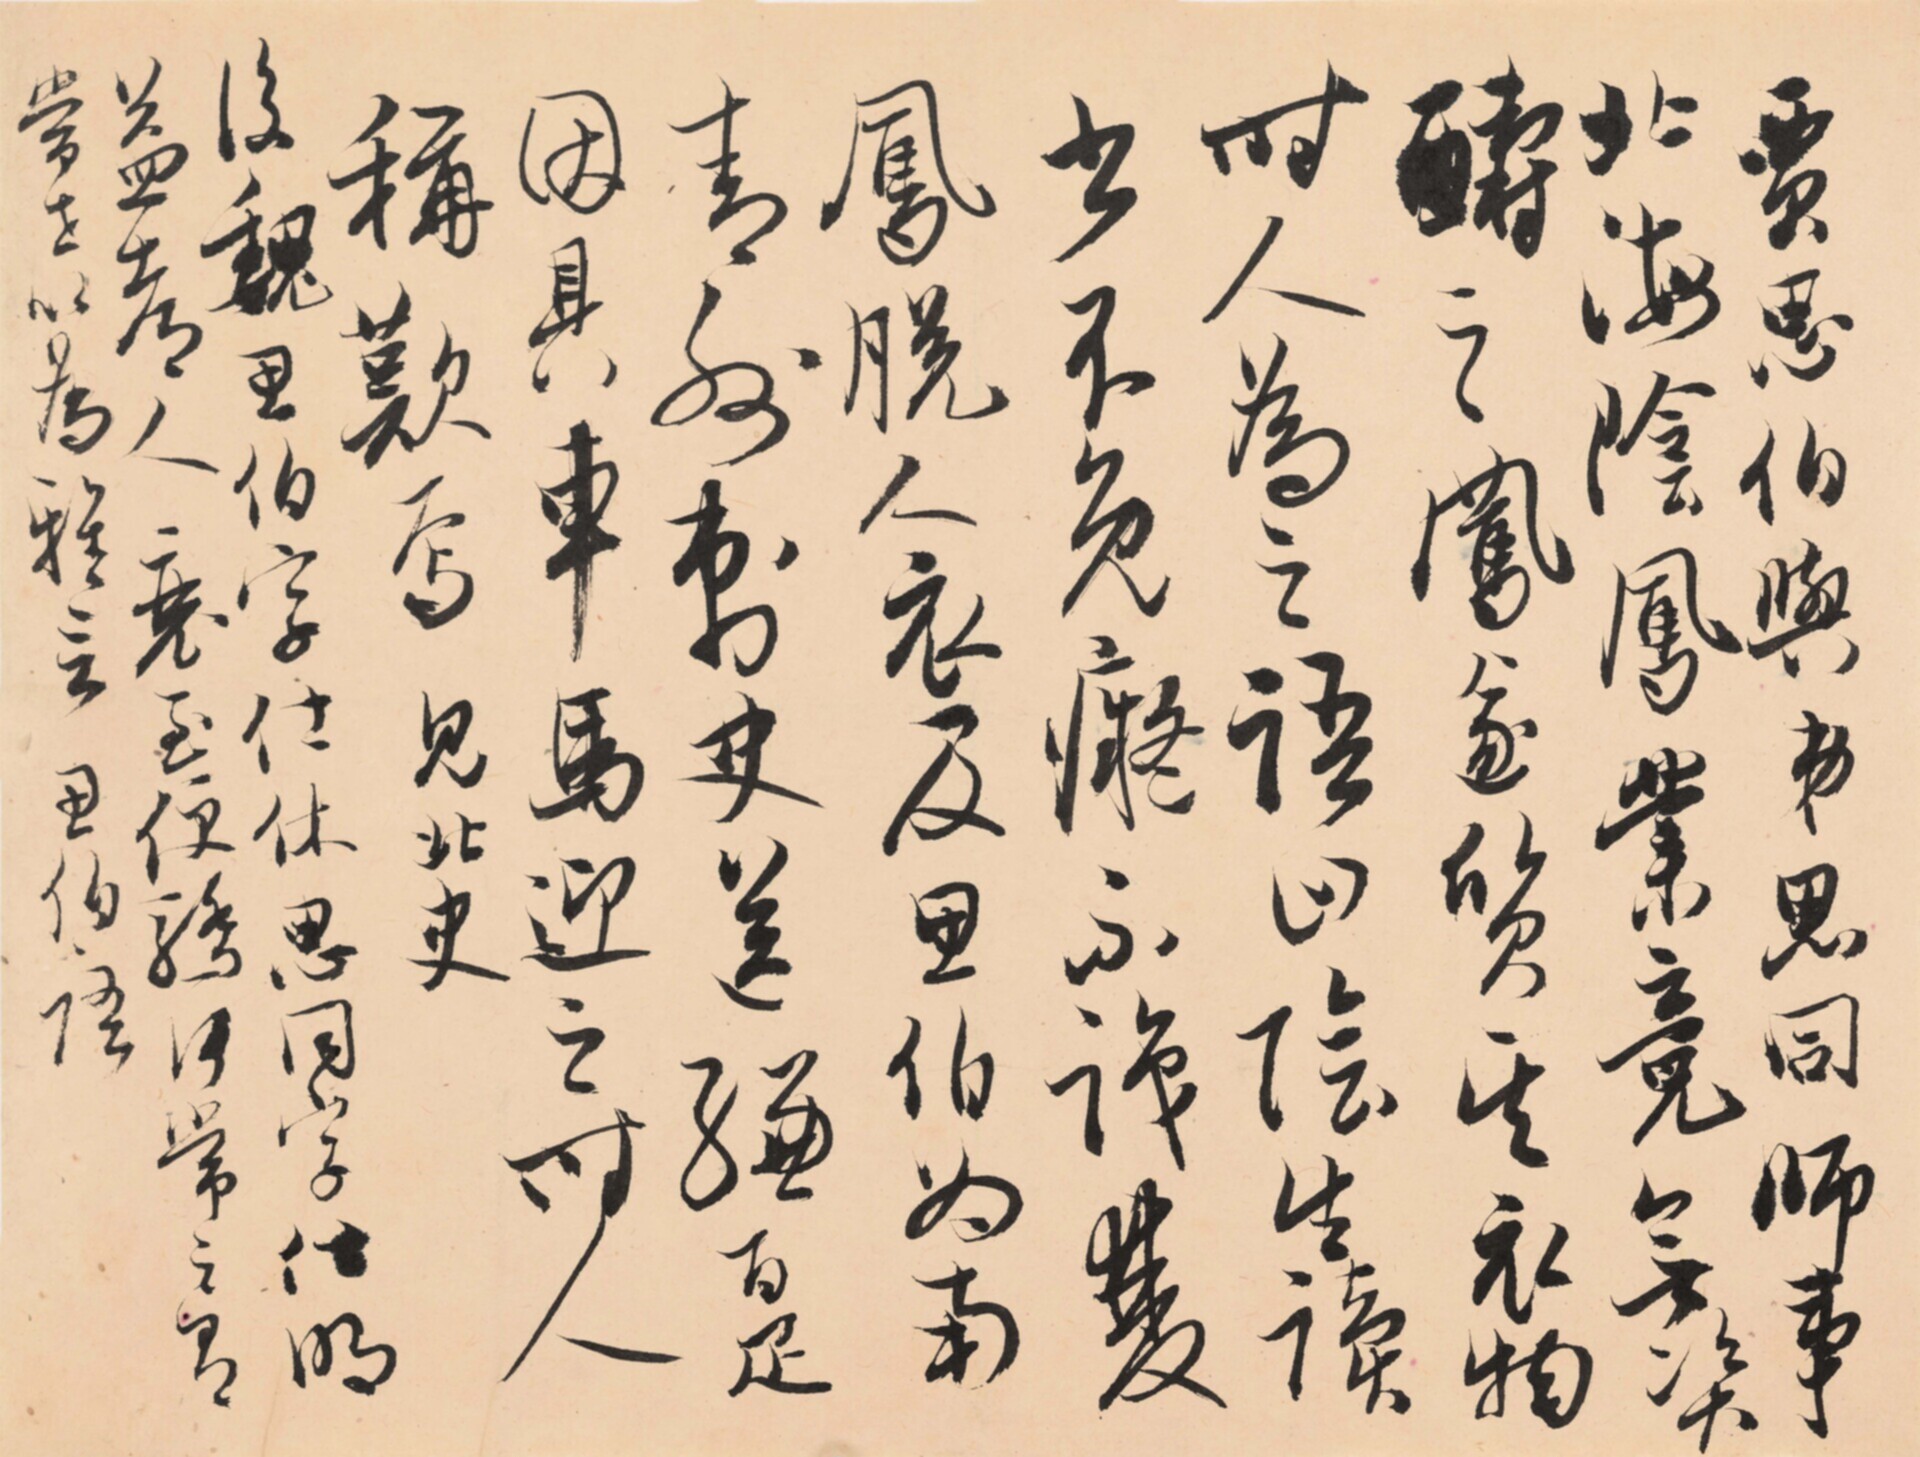 賈思伯與弟思同師事
北海陰鳳業竟無資
醻之鳳遂質其衣物
時人為之語曰陰生讀
書不免癡不識雙
鳳脫人衣及思伯為南
青州刺史送縑百疋
因具車馬迎之時人
稱歎焉 見北史
後魏思伯字仕休思同字仕明
益都人 衰至便驕何常之有
當世以為雅言 思伯語